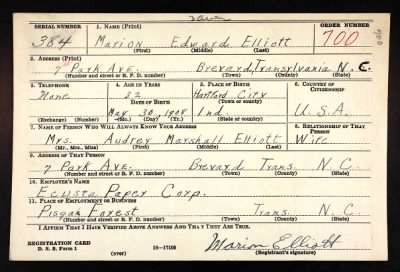 SERIAL NUMBER 1. NAME (Print) ORDER NUMBER
384 Marion Edward Elliott 700
(First) (Middle) (Last)
2. ADDRESS (Print)
7 Park Ave. Brevard, Transylvania N. C.
(Number and street or R. F. D. number) (Town) (County) (State)
3. TELEPHONE 4. AGE IN YEARS 5. PLACE OF BIRTH 6. COUNTRY OF CITIZENSHIP
None 32 Hartford City
DATE OF BIRTH (Town or county)
May 30 1908 Ind. U.S.A.
(Exchange) (Number) (Mo.) (Day) (Yr.) (State or country)
7. NAME OF PERSON WHO WILL ALWAYS KNOW YOUR ADDRESS 8. RELATIONSHIP OF THAT PERSON
Mrs. Audrey Marshall Elliott Wife
(Mr., Mrs., Miss) (First) (Middle) (Last)
9. ADDRESS OF THAT PERSON
7 Park Ave. Brevard Trans. N.C.
(Number and street or R. F. D. number) (Town) (County) (State)
10. EMPLOYER'S NAME
Ecusta Paper Corp.
11. PLACE OF EMPLOYMENT OR BUSINESS
Pisgah Forest Trans. N.C.
(Number and street or R. F. D. number) (Town) (County) (State)
I AFFIRM THAT I HAVE VERIFIED ABOVE ANSWERS AND THAT THEY ARE TRUE.
REGISTRATION CARD
D. S. S. Form 1 (over) 16—17105 Marion Elliott
(Registrant's signature)